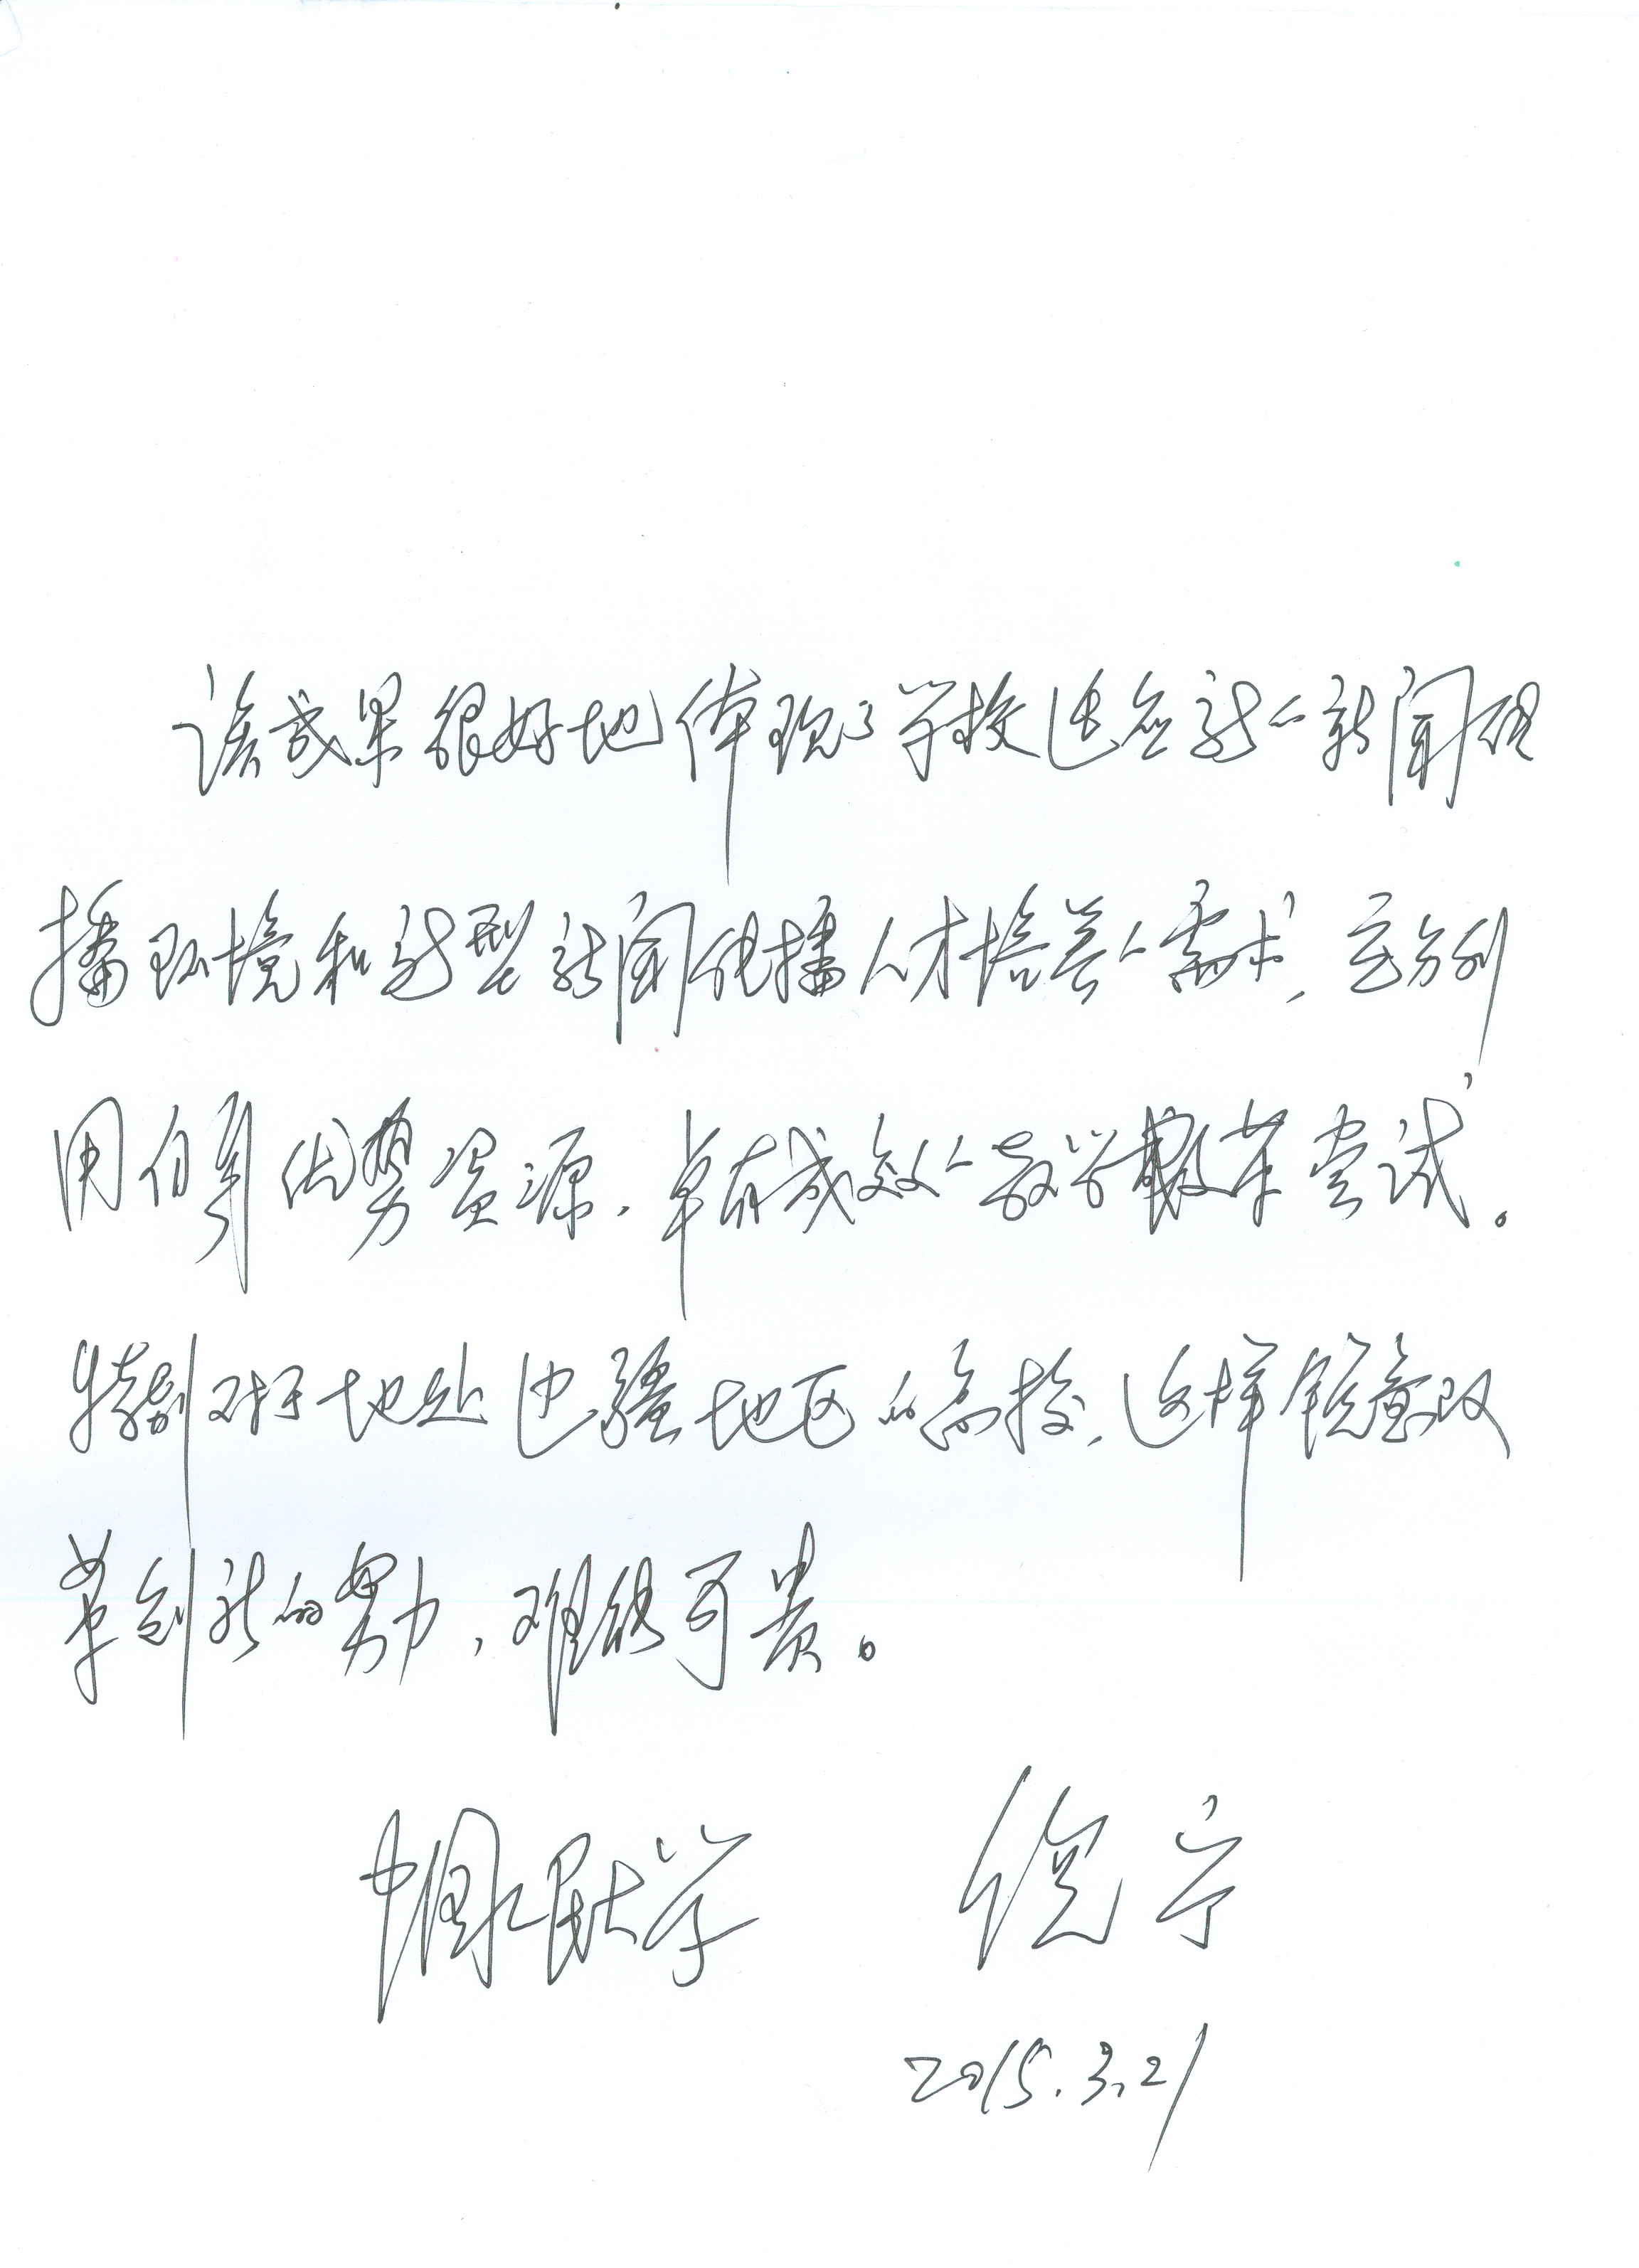 该成果很好地体现了学校适应新的新闻传
播环境和新型新闻传播人才培养的需求，充分利
用自身优势资源，卓有成效的教学改革尝试。
特别对于地处边疆地区的高校，这样锐意改
革创新的努力，难能可贵。
中国人民大学 倪宁
2015.3.21